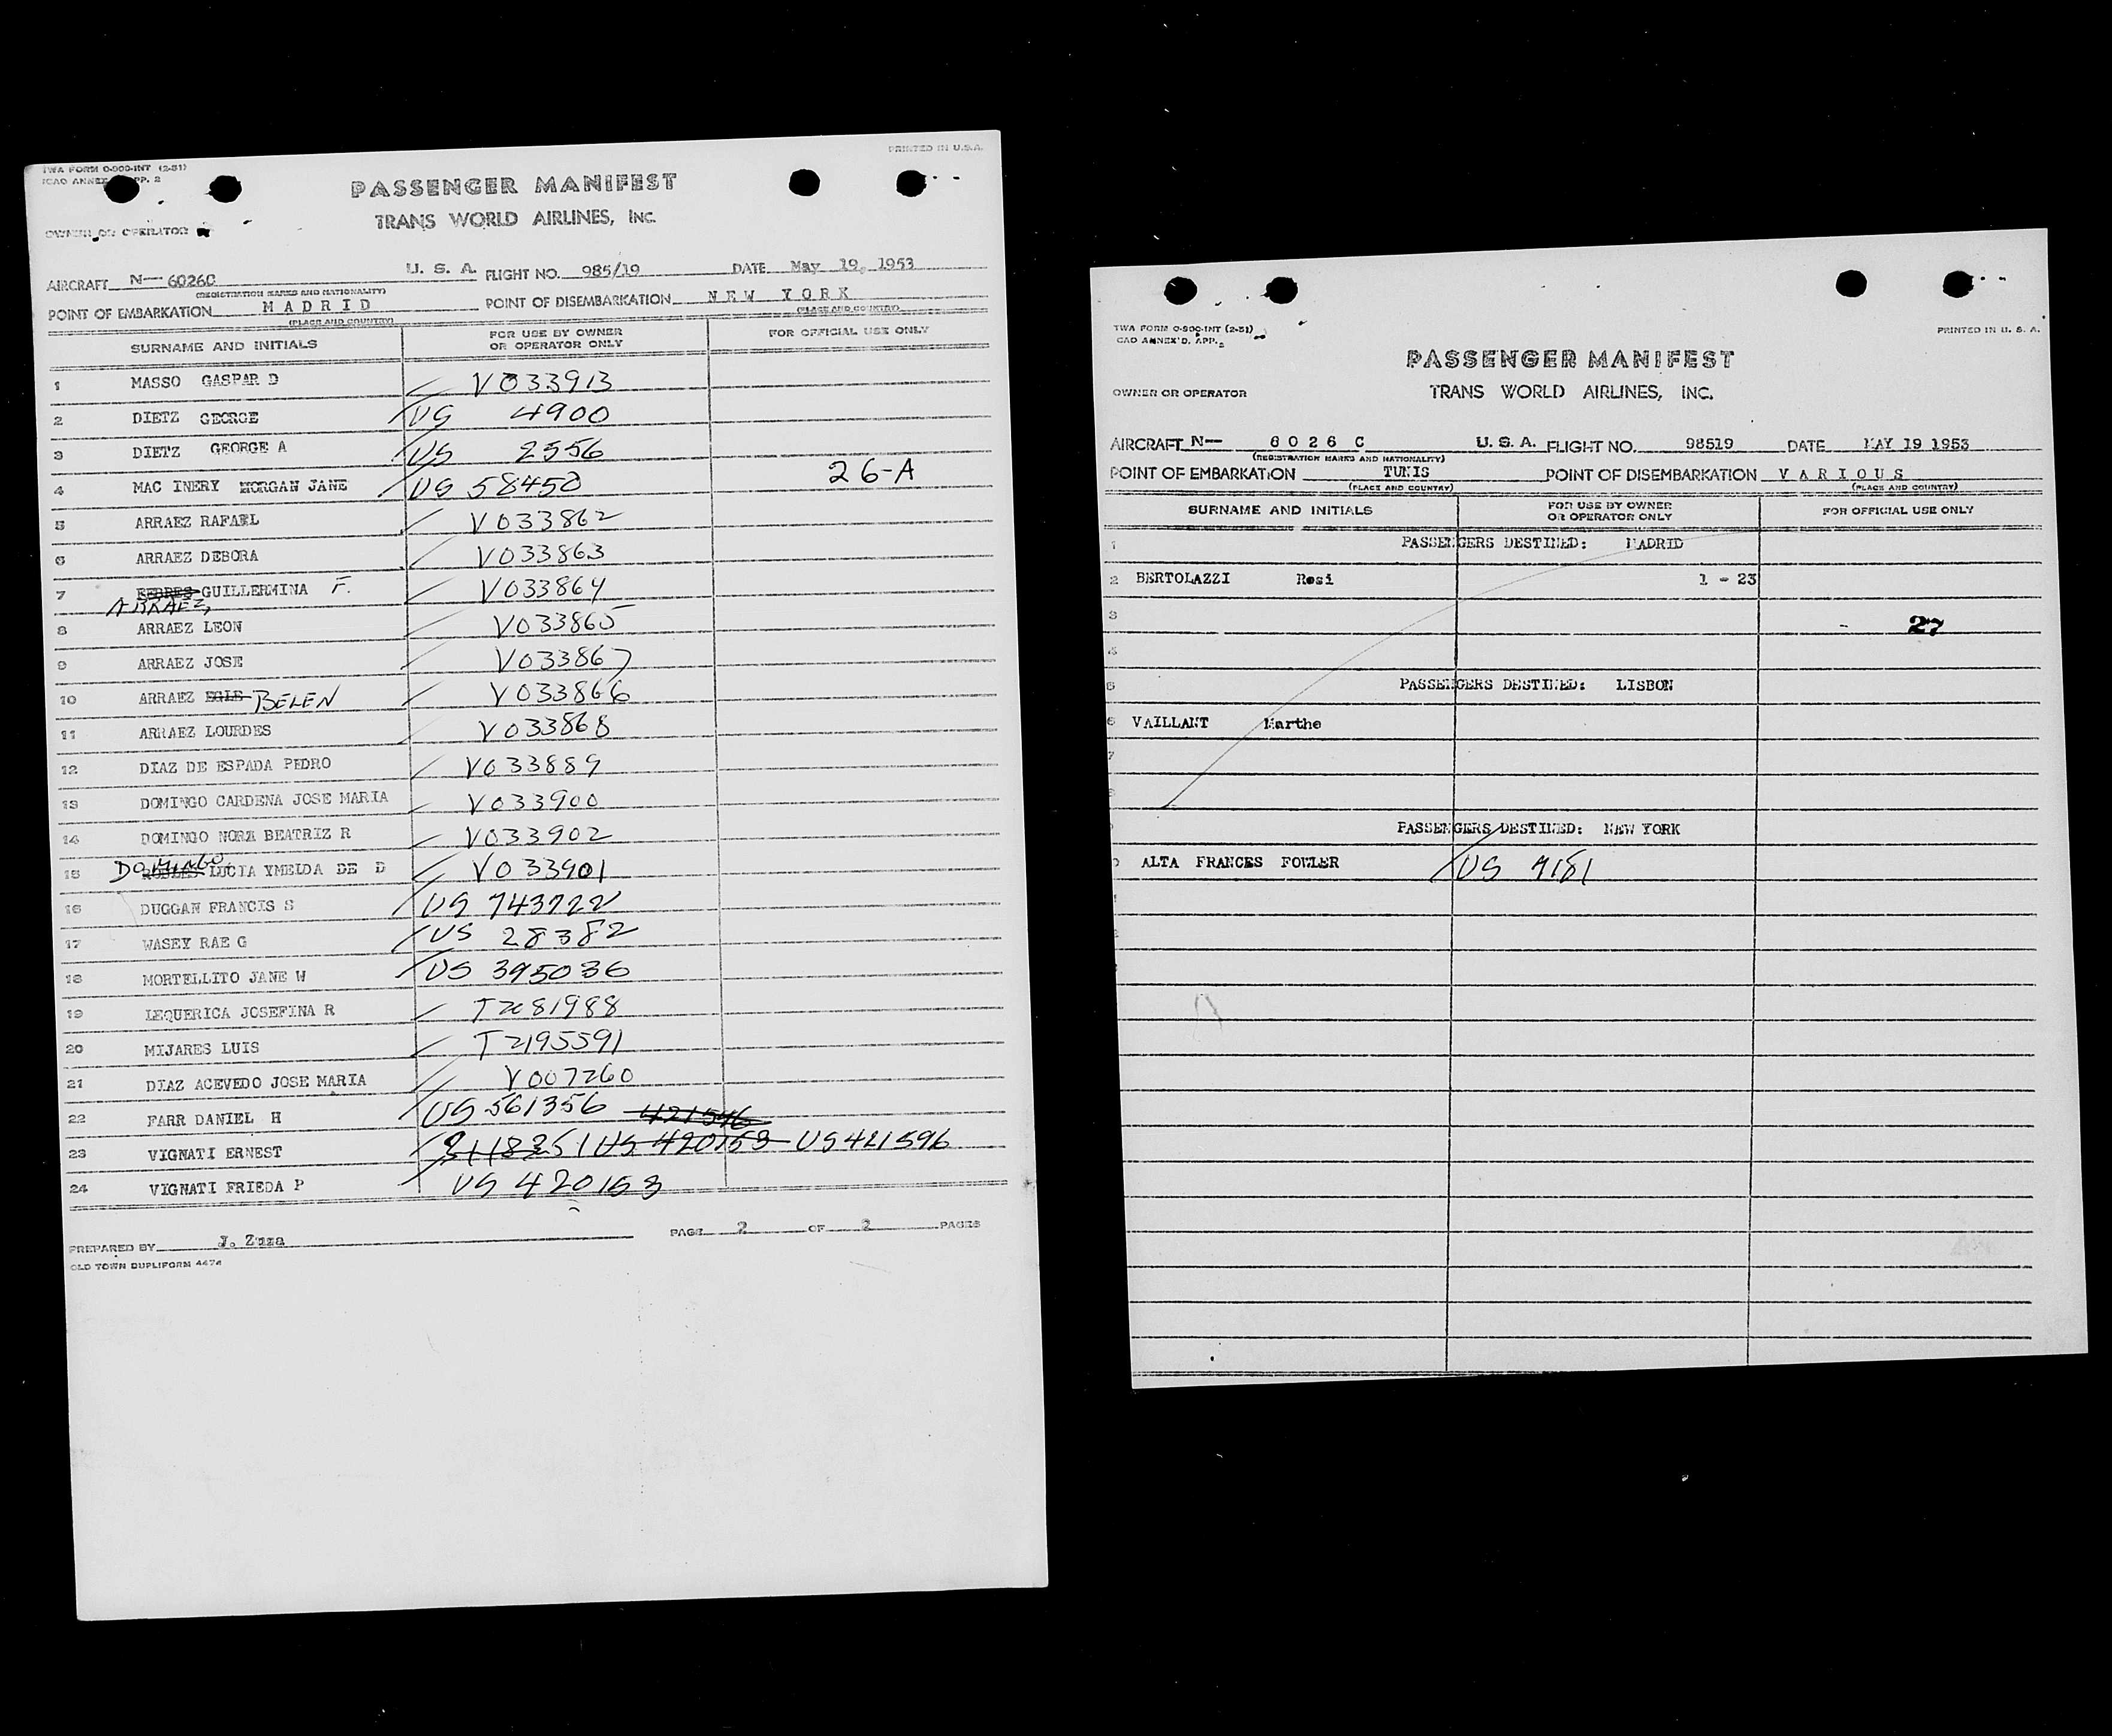 TWA FORM O-900-INT (2-51)
PRINTED IN U.S.A.
ICAO ANNEX APP. 2
PASSENGER MANIFEST
TRANS WORLD AIRLINES, INC.
OWNER OR OPERATOR
AIRCRAFT N— 6026C U. S. A. FLIGHT NO. 985/19 DATE May 19, 1953
(REGISTRATION MARKS AND NATIONALITY)
POINT OF EMBARKATION MADRID POINT OF DISEMBARKATION NEW YORK
(PLACE AND COUNTRY) (PLACE AND COUNTRY)
SURNAME AND INITIALS FOR USE BY OWNER OR OPERATOR ONLY FOR OFFICIAL USE ONLY
1 MASSO GASPAR D V033913
2 DIETZ GEORGE US 4900
3 DIETZ GEORGE A US 2556
4 MAC INERY MORGAN JANE US 58450 26-A
5 ARRAEZ RAFAEL V033862
6 ARRAEZ DEBORA V033863
7 FEBRES GUILLERMINA F. V033864
ARRAEZ,
8 ARRAEZ LEON V033865
9 ARRAEZ JOSE V033867
10 ARRAEZ EGLE BELEN V033866
11 ARRAEZ LOURDES V033868
12 DIAZ DE ESPADA PEDRO V033889
13 DOMINGO CARDENA JOSE MARIA V033900
14 DOMINGO NORA BEATRIZ R V033902
DOMINGO
15 ROBLES LUCIA YMELDA DE D V033901
16 DUGGAN FRANCIS S US 743722
17 WASEY RAE G US 28382
18 MORTELLITO JANE W US 395036
19 LEQUERICA JOSEFINA R T2081988
20 MIJARES LUIS T2195591
21 DIAZ ACEVEDO JOSE MARIA V007260
22 FARR DANIEL H US 561356 421596
23 VIGNATI ERNEST US 420153 US 421596
24 VIGNATI FRIEDA P US 420153
PREPARED BY J. Zuza PAGE 2 OF 2 PAGES
OLD TOWN DUPLIFORM 4474
TWA FORM O-900-INT (2-51)
CAO ANNEX 9, APP. 2
PRINTED IN U. S. A.
PASSENGER MANIFEST
OWNER OR OPERATOR TRANS WORLD AIRLINES, INC.
AIRCRAFT N— 6026 C U. S. A. FLIGHT NO. 98519 DATE MAY 19 1953
(REGISTRATION MARKS AND NATIONALITY)
POINT OF EMBARKATION TUNIS POINT OF DISEMBARKATION VARIOUS
(PLACE AND COUNTRY) (PLACE AND COUNTRY)
SURNAME AND INITIALS FOR USE BY OWNER OR OPERATOR ONLY FOR OFFICIAL USE ONLY
1 PASSENGERS DESTINED: MADRID
2 BERTOLAZZI Rosi 1 - 23
3 27
4
5 PASSENGERS DESTINED: LISBON
6 VAILLANT Marthe
7
PASSENGERS DESTINED: NEW YORK
ALTA FRANCES FOWLER US 9181